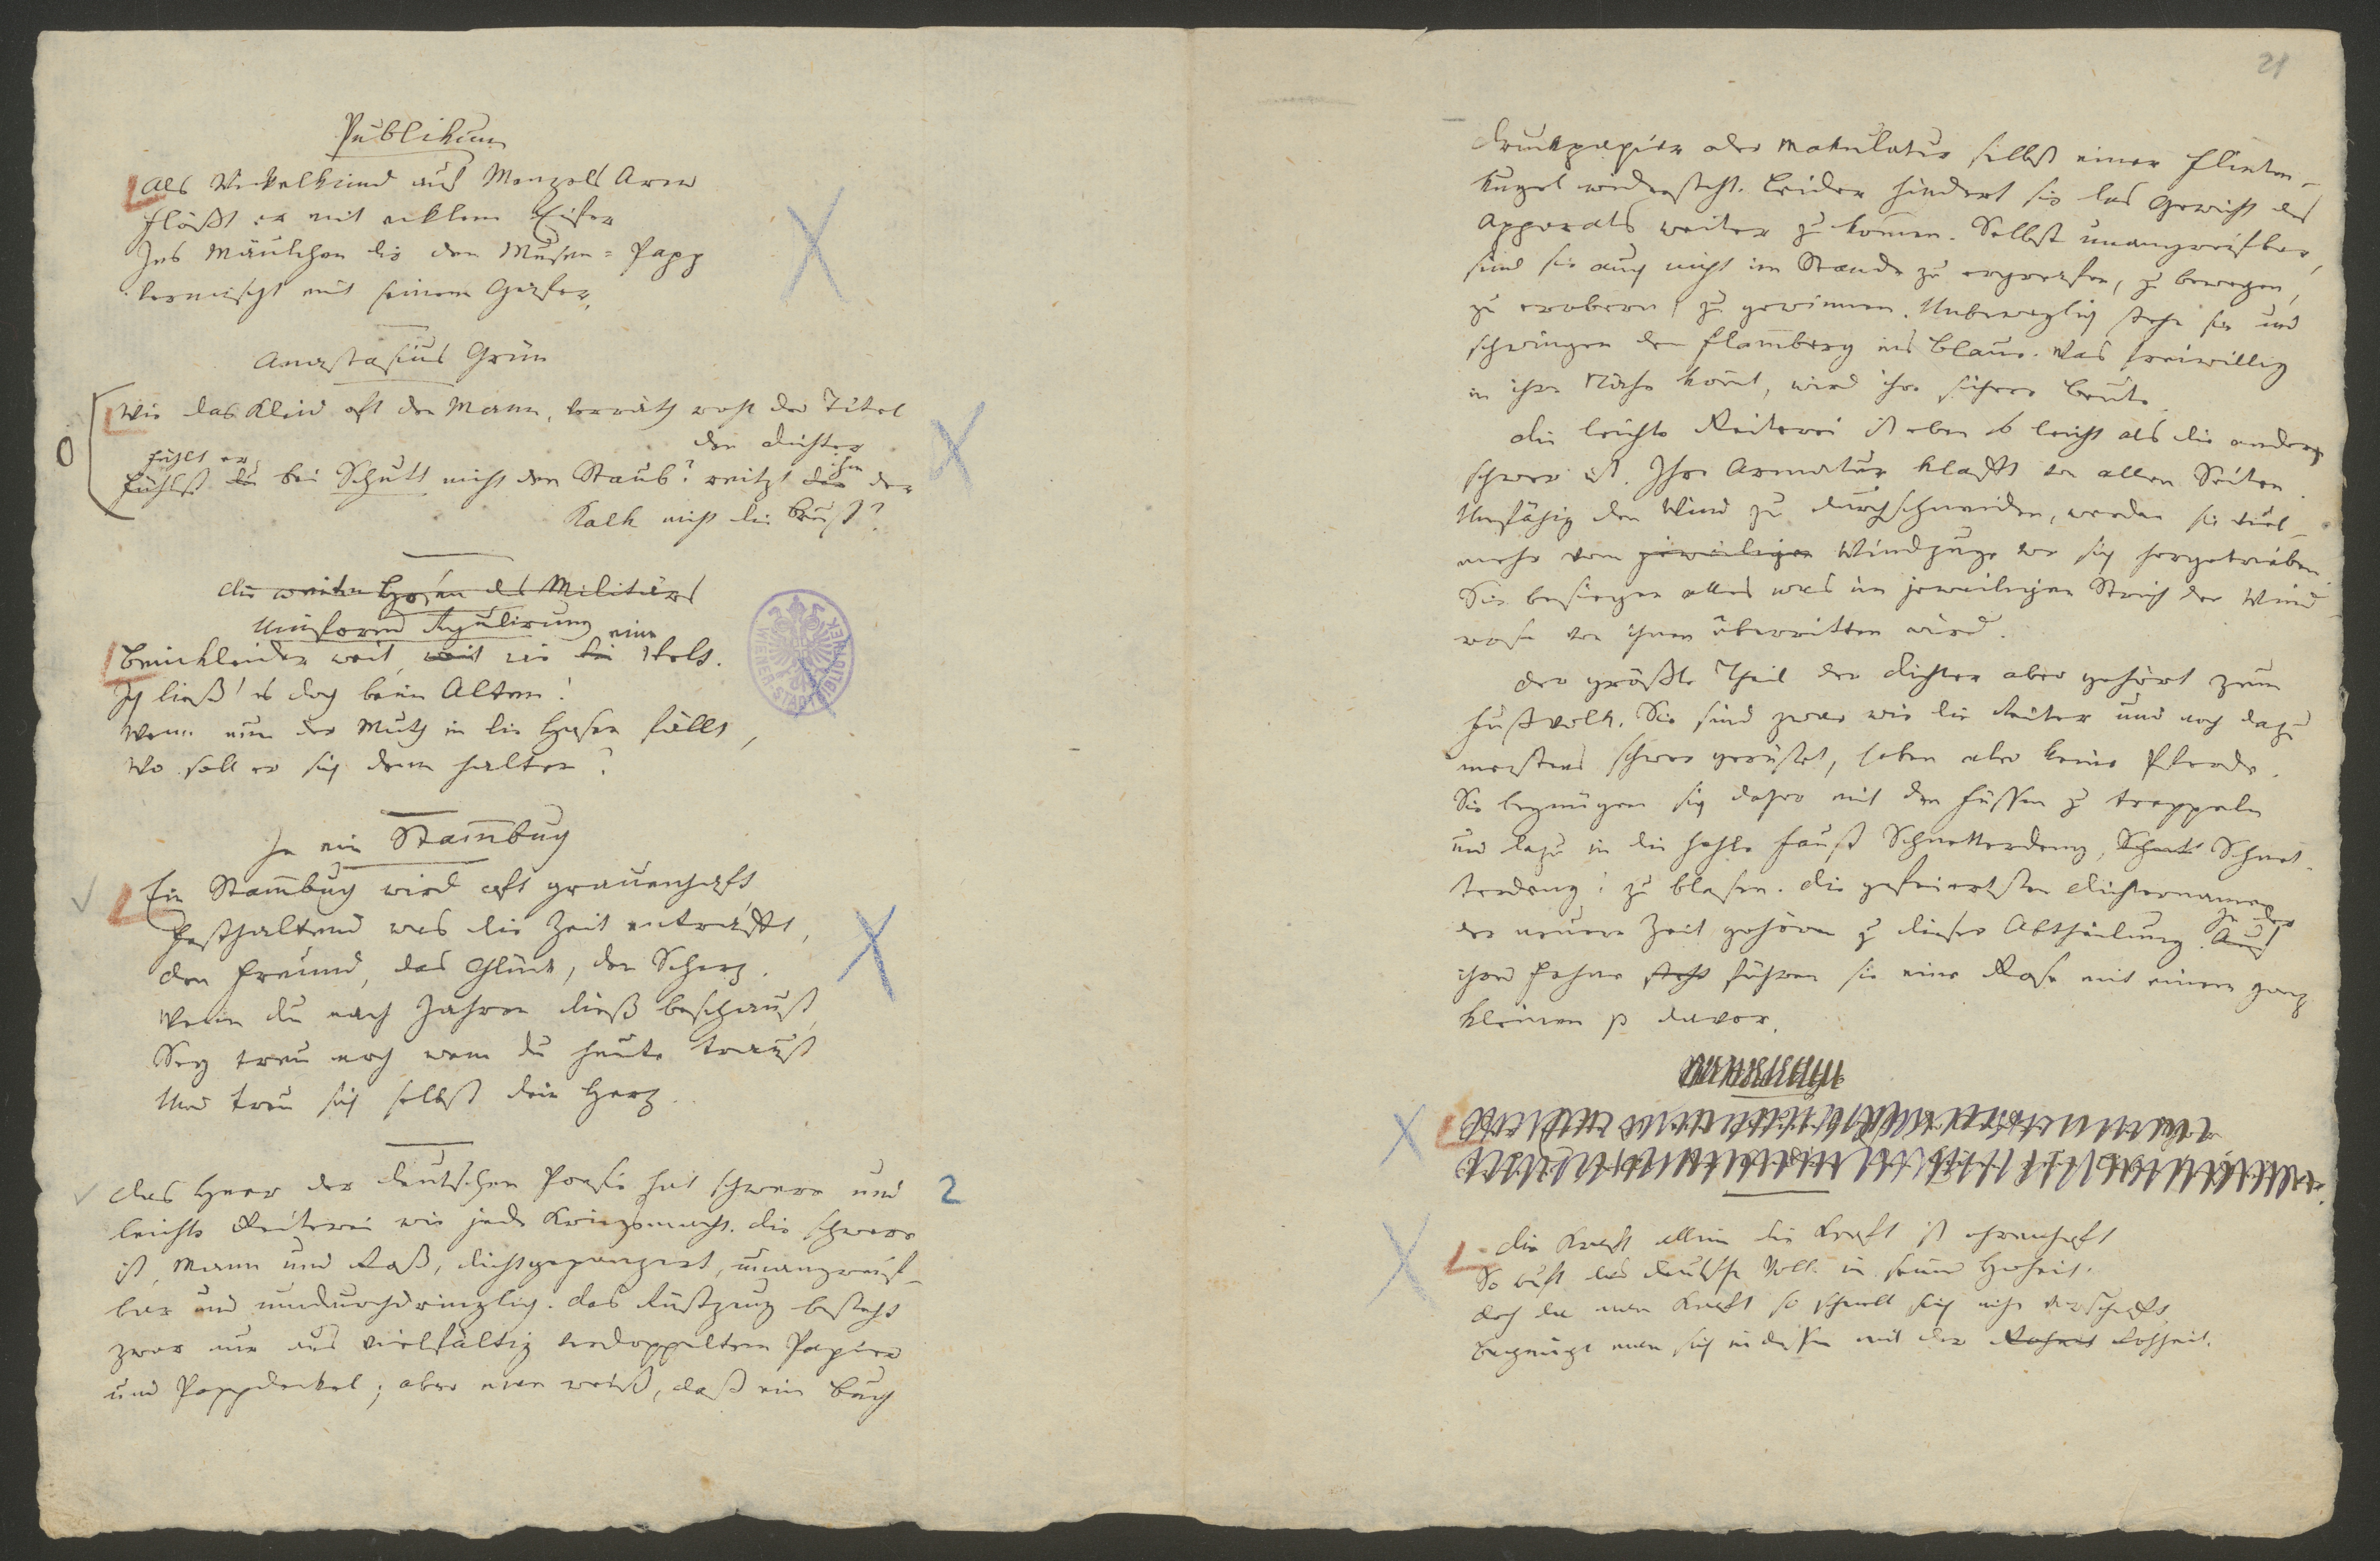 Publikum
Als Wickelkind auf Menzels Arm
Flößt er mit eklem Eifer
Ins Mäulchen dir den Musen-Papp
Vermischt mit seinem Geifer.
Anastasius Grün
Wie das Kleid oft den Mann, verräth wohl der Titel
den Dichter
fühlt er
Fühlst du bei Schutt nicht den Staub? reitzt dich der
ihn
Kalk nicht die Brust?
Die weiten Hosen des Militärs
Uniform Regulirung
Beinkleider weit, weit wie die Welt.
eine
Ich ließ' es doch beim Alten!
Wenn nun der Muth in die Hosen fällt,
Wo soll er sich denn halten?
In ein Stam̅buch
Ein Stam̅buch wird oft grauenhaft,
Festhaltend was die Zeit entrafft,
Den Freund, das Glück, den Scherz.
Wenn du nach Jahren dieß beschaust,
Sey treu noch wem du heute traust
Und treu sich selbst dein Herz.
Das Heer der deutschen Poesie hat schwere und
2
leichte Reiterei wie jede Kriegsmacht. Die schwere
ist, Mann und Roß, dichtgepanzert, unangreif-
bar und undurchdringlich. Das Rüstzeug besteht
zwar nur aus vielfältig verdoppeltem Papier
und Pappdeckel; aber man weiß, daß ein Buch
21
Druckpapier oder Makulatur selbst einer Flinten-
kugel widersteht. Leider hindert sie das Gewicht des
Apparats weiter zu kom̅en. Selbst unangreifbar,
sind sie auch nicht im Stande zu ergreifen, zu bewegen,
zu erobern, zu gewinnen. Unbeweglich stehn sie und
schwingen den Flam̅berg ins Blaue. Was freiwillig
in ihre Nähe kom̅t, wird ihre sichere Beute.
Die leichte Reiterei ist eben so leicht als die andere
schwer ist. Ihre Armatur klafft an allen Seiten.
Unfähig den Wind zu durchschneiden, werden sie viel-
mehr vom jeweiligen Windzuge vor sich hergetrieben.
Sie besiegen alles was im jeweiligen Strich der Wind-
rose von ihnen überritten wird.
Der größte Theil der Dichter aber gehört zum
Fußvolk. Sie sind zwar wie die Reiter und noch dazu
meistens schwer gerüstet, haben aber keine Pferde.
Sie begnügen sich daher mit den Füssen zu trappeln
und dazu in die hohle Faust Schnetterdeng, Schnet Schnet-
terdeng! zu blasen. Die gefeiertsten Dichternamen
der neuern Zeit gehören zu dieser Abtheilung. Auf
In der
ihrer Fahne steht führen sie eine Rose mit einem ganz
kleinen p davor.
Die Kraft allein die Kraft ist ehrenhaft
So ruft das deutsche Volk in seiner Hoheit.
Doch da man Kraft so schnell sich nicht verschafft,
Begnügt man sich indessen mit der Roheit Rohheit.